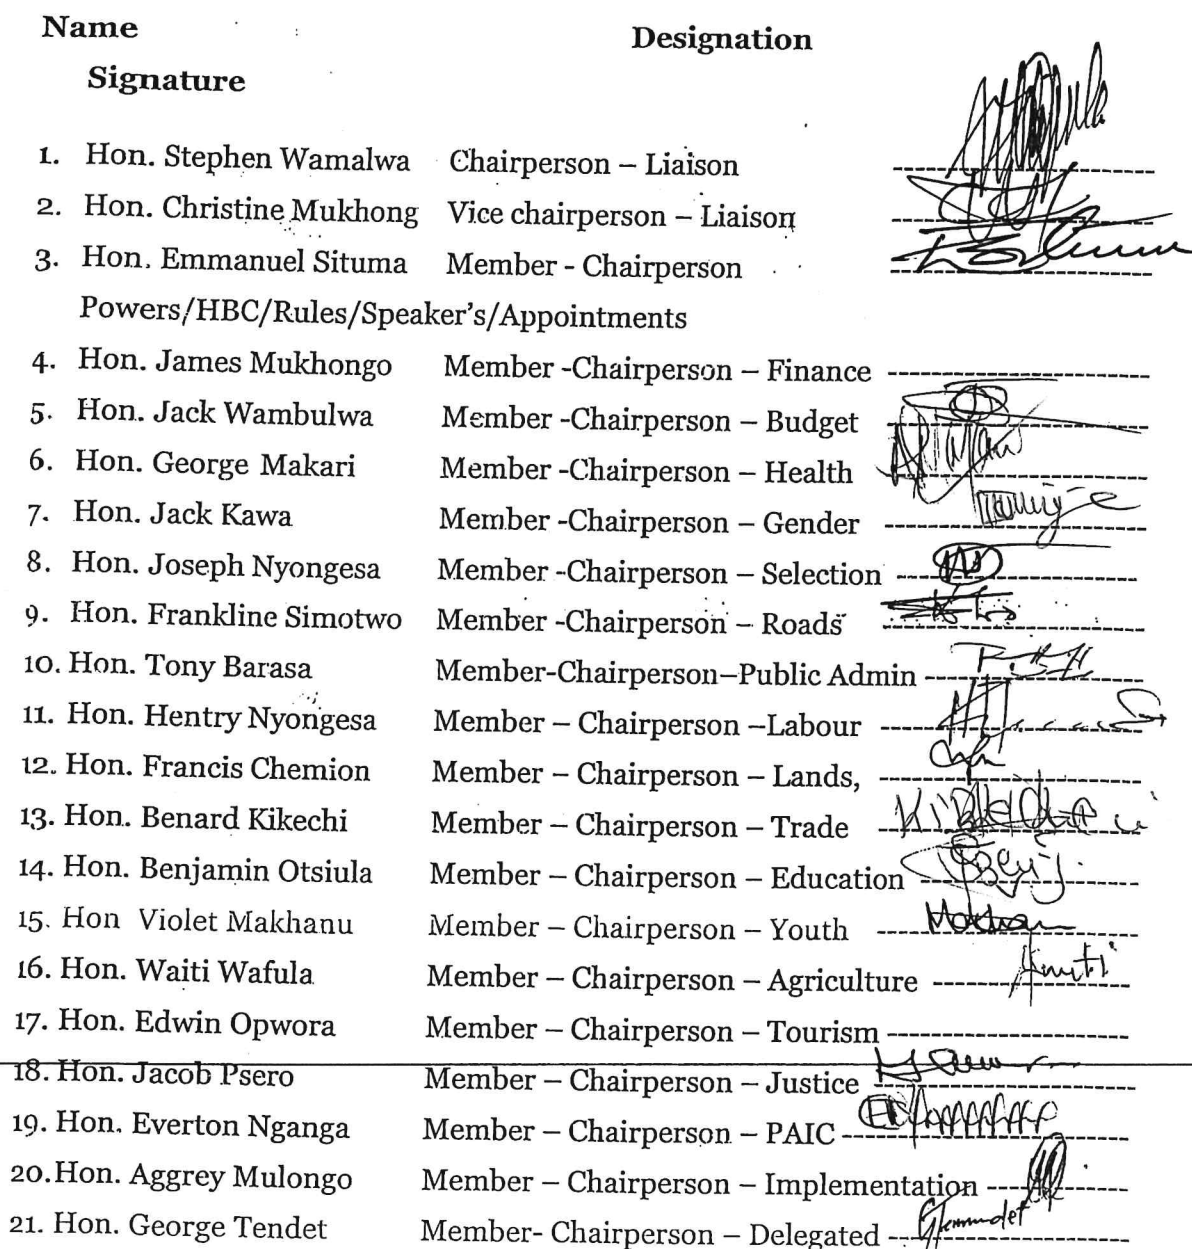 Name
Designation
Signature
1. Hon. Stephen Wamalwa Chairperson – Liaison
2. Hon. Christine Mukhong Vice chairperson – Liaison
3. Hon. Emmanuel Situma Member - Chairperson
Powers/HBC/Rules/Speaker's/Appointments
4. Hon. James Mukhongo Member -Chairperson – Finance
5. Hon. Jack Wambulwa Member -Chairperson – Budget
6. Hon. George Makari Member -Chairperson – Health
7. Hon. Jack Kawa Member -Chairperson – Gender
8. Hon. Joseph Nyongesa Member -Chairperson – Selection
9. Hon. Frankline Simotwo Member -Chairperson – Roads
10. Hon. Tony Barasa Member-Chairperson–Public Admin
11. Hon. Hentry Nyongesa Member – Chairperson –Labour
12. Hon. Francis Chemion Member – Chairperson – Lands,
13. Hon. Benard Kikechi Member – Chairperson – Trade
14. Hon. Benjamin Otsiula Member – Chairperson – Education
15. Hon Violet Makhanu Member – Chairperson – Youth
16. Hon. Waiti Wafula Member – Chairperson – Agriculture
17. Hon. Edwin Opwora Member – Chairperson – Tourism
18. Hon. Jacob Psero Member – Chairperson – Justice
19. Hon. Everton Nganga Member – Chairperson – PAIC
20. Hon. Aggrey Mulongo Member – Chairperson – Implementation
21. Hon. George Tendet Member- Chairperson – Delegated